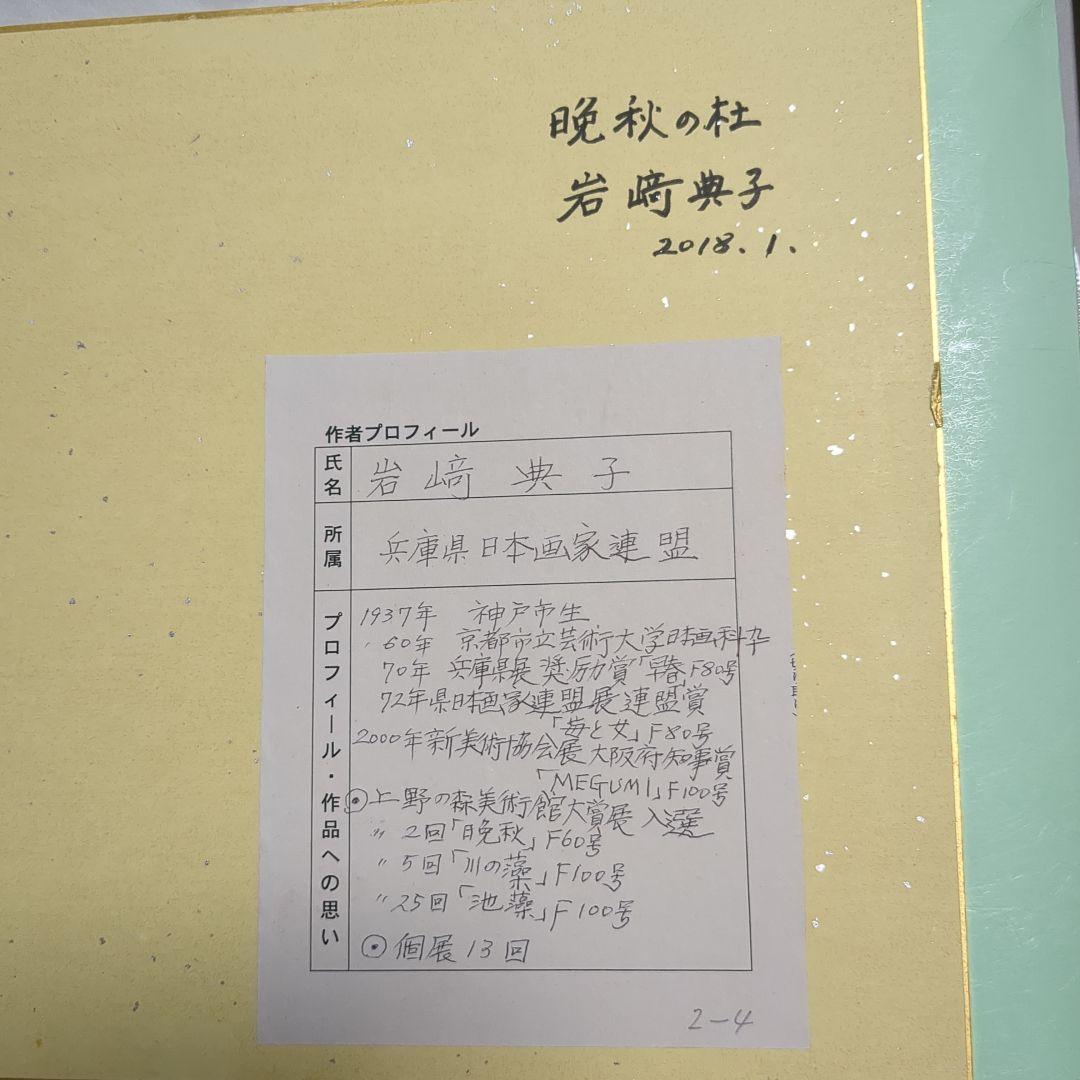 晩秋の杜
岩﨑典子
2018.1.
作者プロフィール
氏名
岩﨑 典子
所属
兵庫県日本画家連盟
プロフィール・作品への思い
1937年 神戸市生
〃60年 京都市立芸術大学日本画科卆
70年 兵庫県展 奨励賞「早春」F80号
72年県日本画家連盟展 連盟賞
「苺と女」F80号
2000年新美術協会展 大阪府知事賞
「MEGUMI」F100号
⦿上野の森美術館大賞展 入選
〃2回「晩秋」F60号
〃5回「川の藻」F100号
〃25回「池藻」F100号
⦿個展13回
2-4